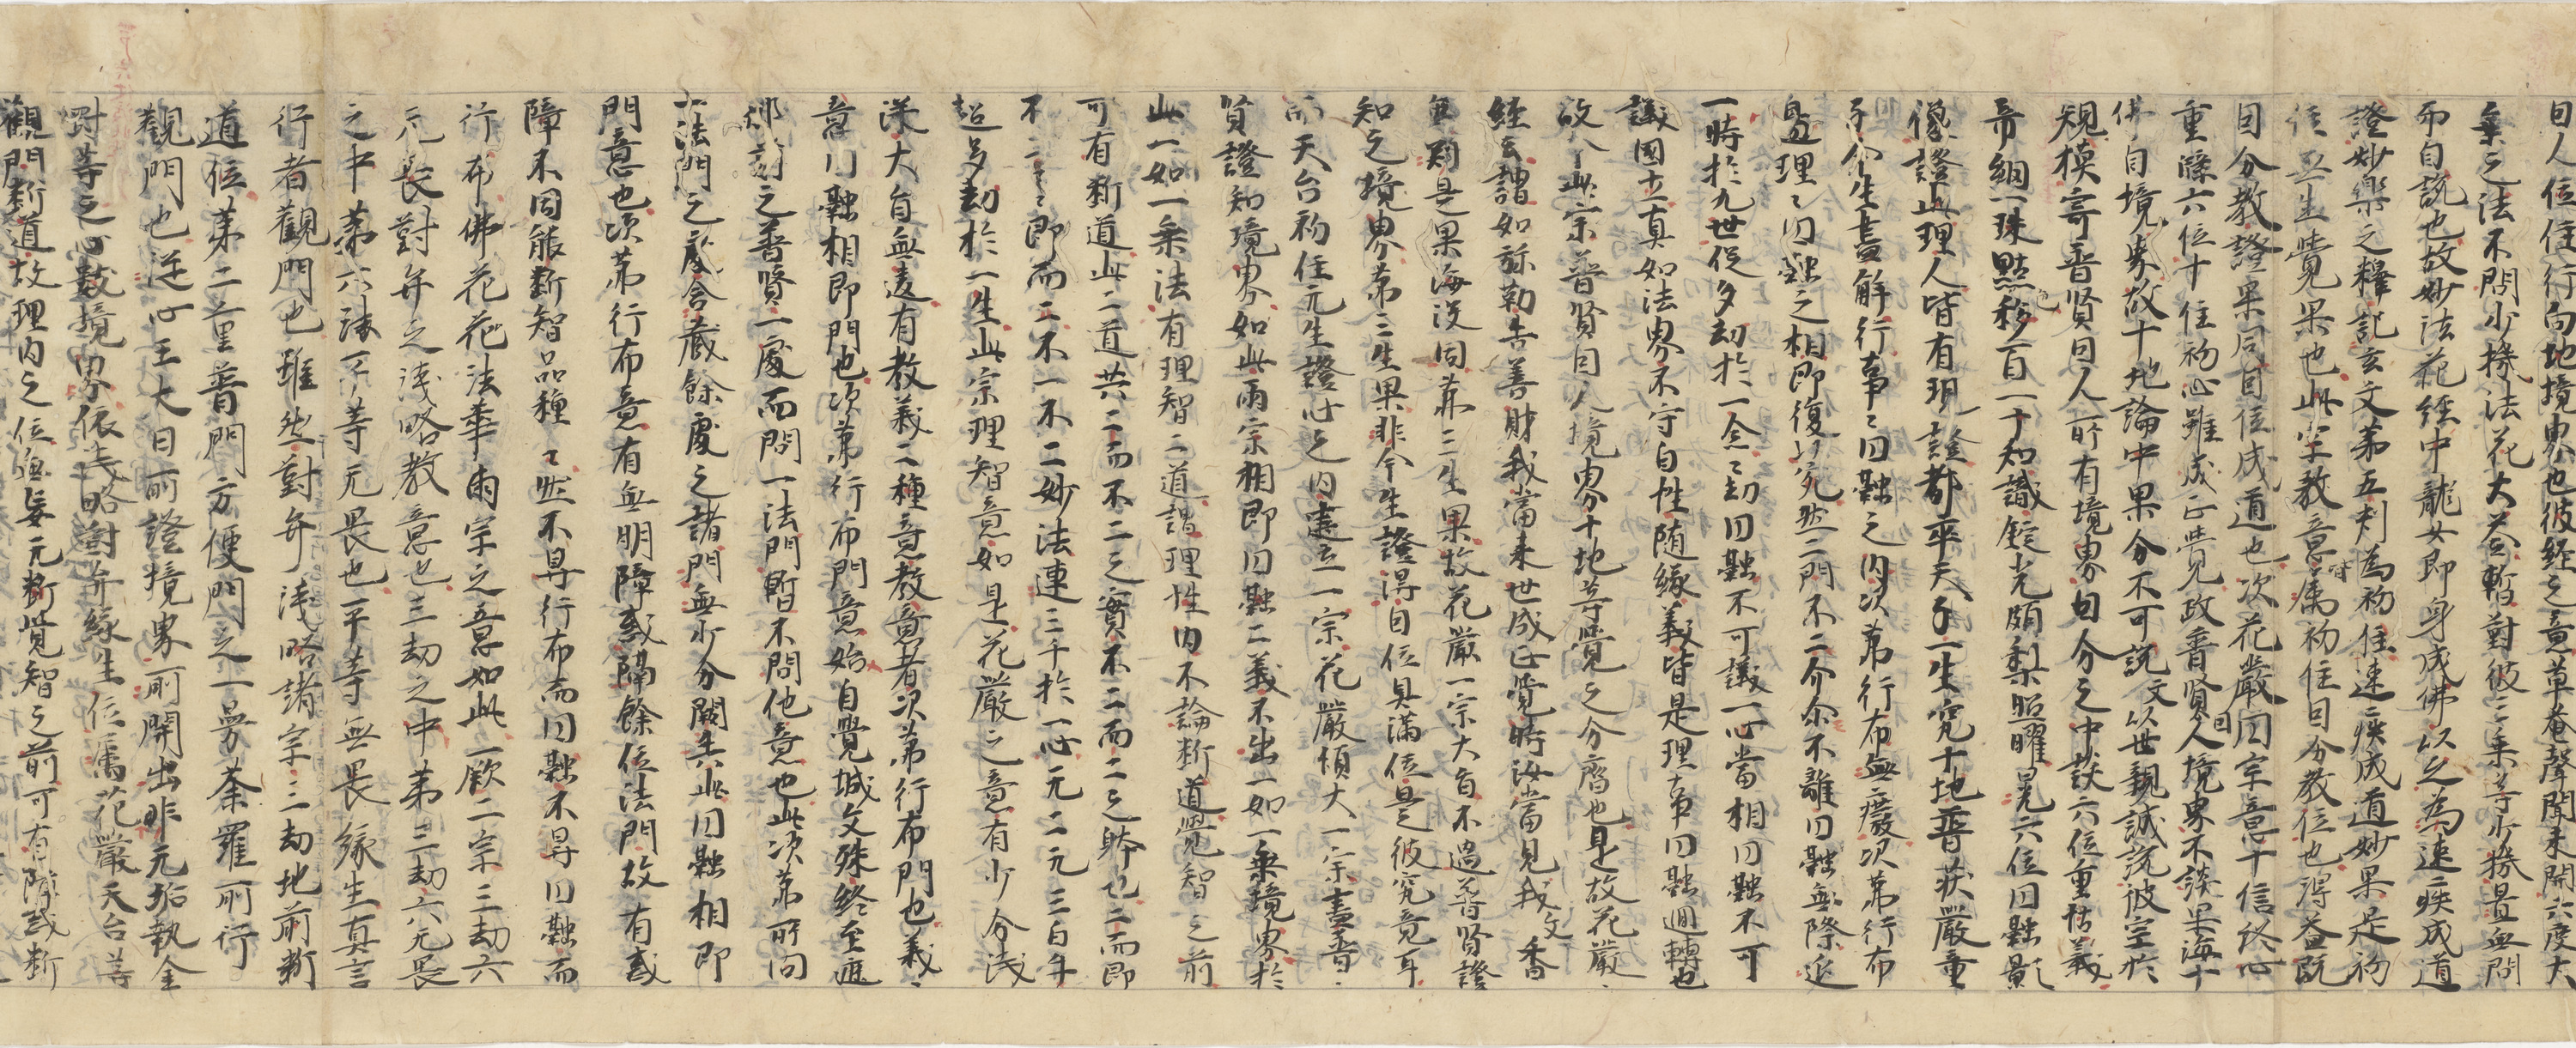 因人位住行向地境界也彼経之意草菴聲聞未開六度大
乗之法不関少機法花大益暫對彼二乗等少機置無問
而自説也故妙法花経中龍女即身成佛以之為速疾成道
證妙楽之釋記玄文第五判為初住速疾成道妙果是初
住無生覺果也此宗教意属初住因分教位也得益既
因分教證果同因位成道也次花嚴円宗意十信終心
重磔六位十住初心雖成正覺故普賢因人境界不談果海十
佛自境界故十地論中果分不可説文以世親誠説彼宗於
規模寄普賢因人所有境界因分之中談六位重恬義
帝網一珠點移百一于知識錠光頗梨照曜是六位円融影
像證此理人皆有明證都率天子一生究十地普荘嚴童
子今生盡解行事々円融之内次第行布無癈次第行布
盡理々円融之相即復以宛然二門不二介尓不離円融無際延
一時於九世促多劫於一念々劫円融不可議一心當相円融不可
議圓立真如法界不守自性随縁義皆是理事円融迴轉也
故今此宗普賢因人境界十地等覺之分齊也是故花嚴
経云謂如弥勒告善財我當来世成正覺時汝當見我文香
無則是果海没同兼三生果故花嚴一宗大旨不過普賢證
知之境界第三生果非今生證得因位具満位是彼究竟耳
而天台初住元生證此之内建立一宗花嚴傾大一宗盡普
賢證知境界如此兩宗相即円融二義不出一如一乗境界於
此一如一乗法有理智二道謂理性内不論断道覺智之前
可有断道此二道共二而不二之實不二而二之時也二而即
不二之即而二不一不二妙法連三千於一心元二元三百年
超多劫於一生此宗理智意如是花嚴之意有少分浅
深大旨無違有教義二種意教意者次第行布門也義
意円融相即門也次第行布門意始自覺城文殊終至遮
那刹之普賢一處而問一法門暫不問他意也此次第所向
一法門之處含蔵餘處之諸門無少分闕共此円融相即
門意也次第行布意有無明障或隔餘位法門故有或
障不同能断智品種々然不㝵行布而円融不㝵円融而
行布佛花花法華兩宗之意如此一厥二宗三劫六
元畏對弁之浅略教意也三劫之中第三劫六元畏
之中第六諸平等元畏也平等無畏縁生真言
行者觀門也雖然對弁浅略諸宗三劫地前断
道位第二重普門方便門之一曼荼羅所行
觀門也逆心王大日所證境界所開出非元垢執金
對等之心數境界依浅略對弁縁生位属花嚴天台等
觀門断道故理内之位無妄元断覺智之前可有障或断